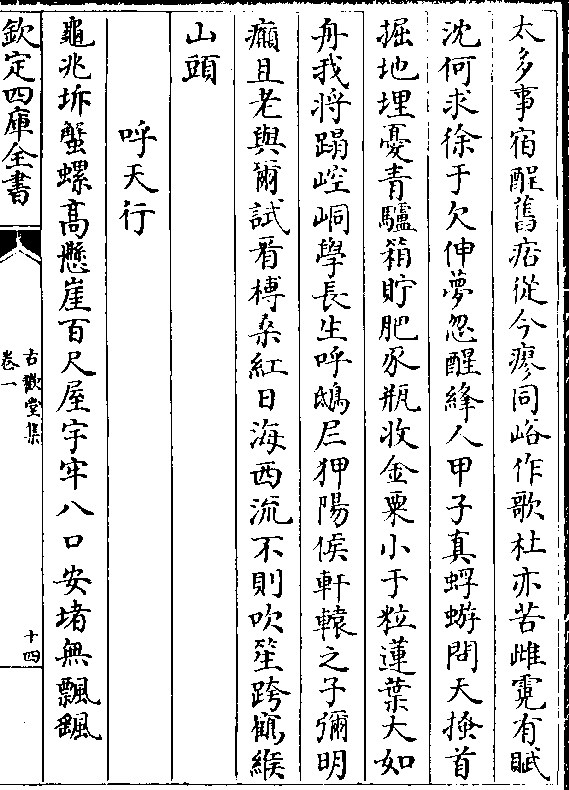 太多事宿酲舊痁從今瘳同峪作歌杜亦苦雌霓有賦
沈何求徐于欠伸夢忽醒絳人甲子真蜉蝣問天搔首
掘地埋憂青驢箱貯肥豕瓶收金粟小于粒蓮葉大如
舟我將躡崆峒學長生呼鴟尼狎陽侯軒轅之子彌明
癩且老與爾試看榑桑紅日海西流不則吹笙跨鶴緱
山頭
呼天行
龜兆坼蟹螺高懸崖百尺屋宇牢八口安堵無飄颻
欽定四庫全書
古歡堂集
卷一
十四